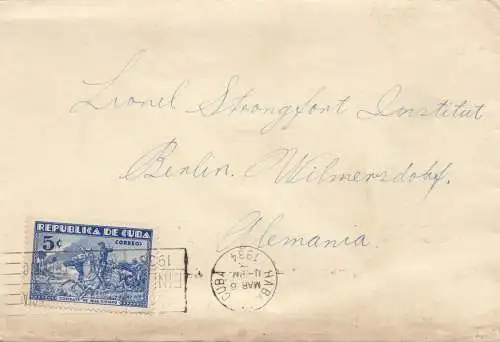 Lionel Strongfort Institut
Berlin. Wilmersdorf.
Alemania.
REPUBLICA DE CUBA
5¢ CORREOS
HABA
CUBA
MAR 6
1934
193